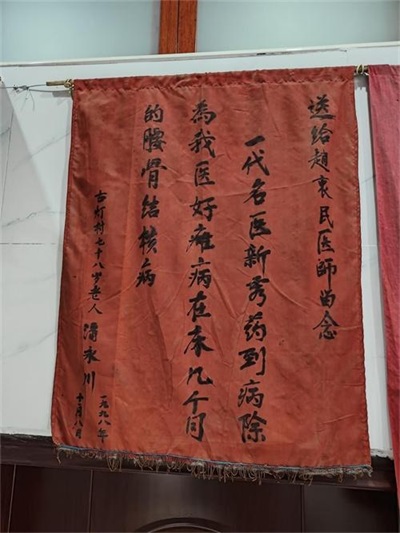 送给趙民医師留念
一代名医新秀药到病除
為我医好瘫病在床几个月
的腰骨结核病
古村七十八岁老人 永川
一九九八年
十月八日